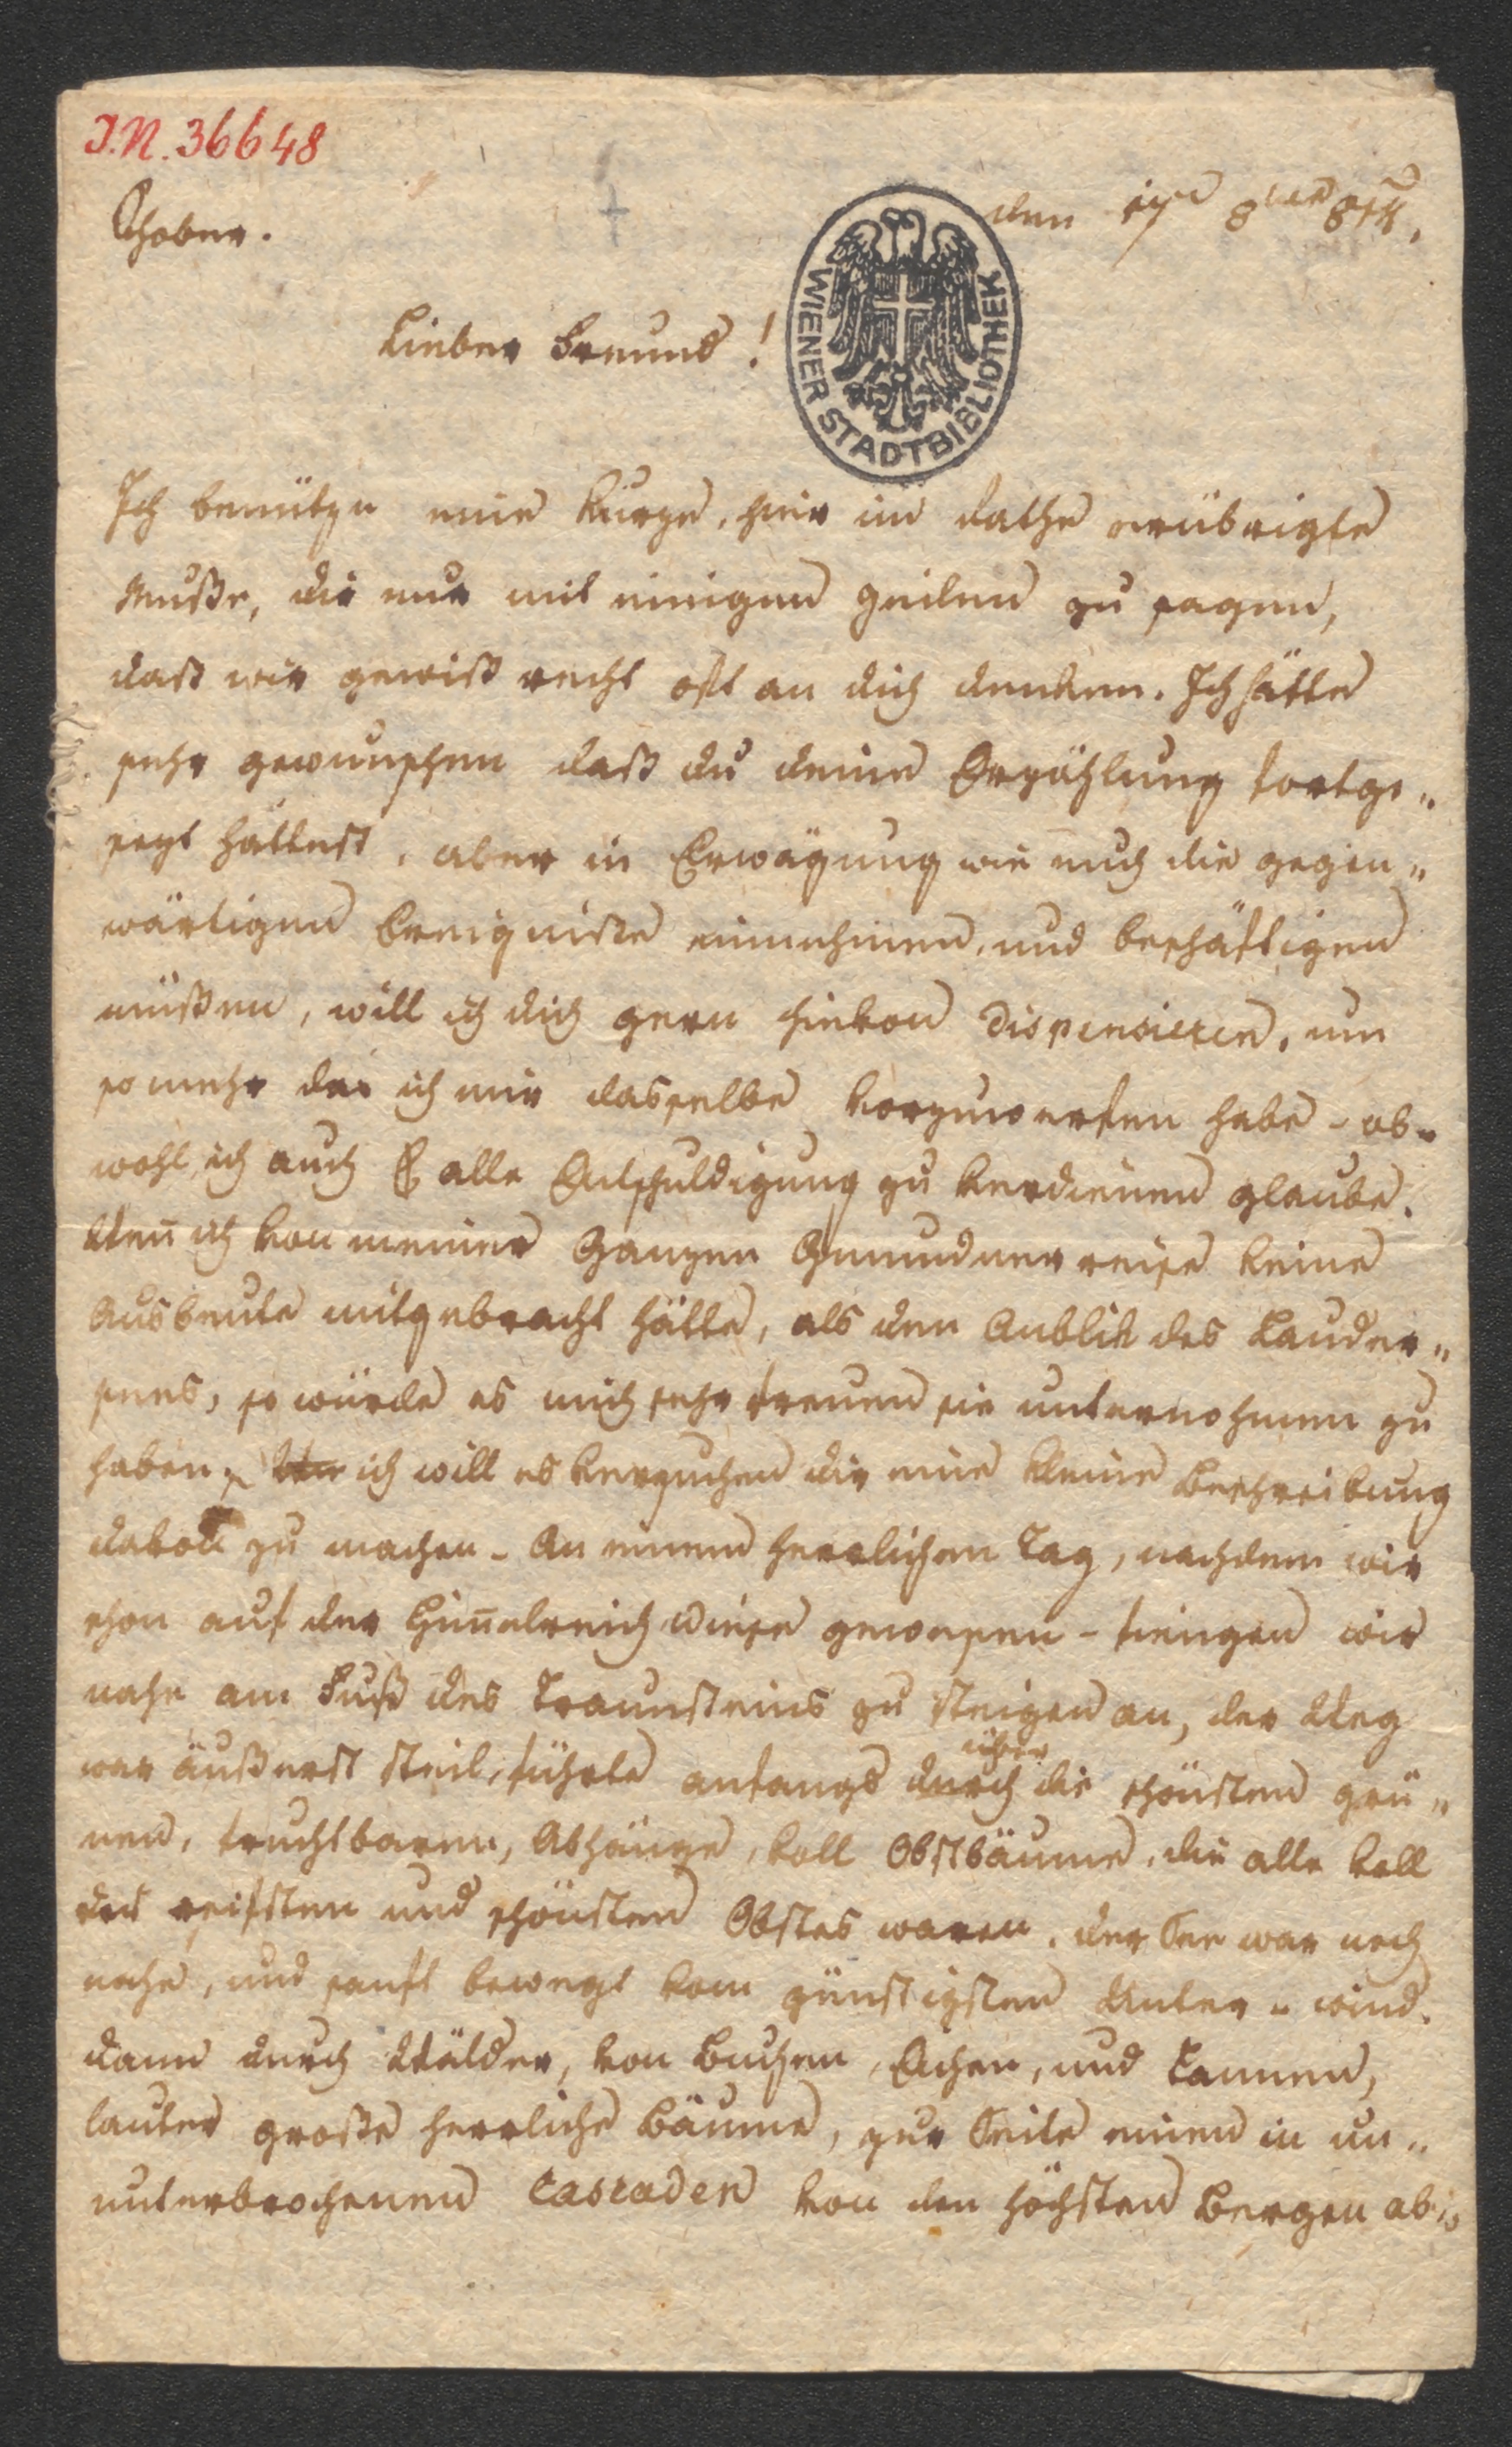 I.N. 36648
Schober.
den 17 8ber 814.
WIENER STADTBIBLIOTHEK
Lieber Freund!
Ich benütze eine kurze, hier im erübrigte
Muße, dir nur mit einigen Zeilen zu sagen,
daß wir gewiß recht oft an dich denken. Ich hätte
sehr gewunschen daß du deine Erzählung fortge„
sezt hättest, aber in Erwägung wie euch die gegen„
wärtigen Ereigniße einnehmen, und beschäftigen
müßen, will ich dich gern hievon dispensieren, um
so mehr da ich mir dasselbe vorzuwerfen habe - ob-
wohl ich auch alle Entschuldigung zu verdienen glaube.
Wenn ich von meiner Ganzen Gmundnerreise keine
Ausbeute mitgebracht hätte, als den Anblick des Lauder„
sees, so würde es mich sehr freuen sie unternohmen zu
haben, ich will es versuchen dir eine kleine Beschreibung
davon zu machen - An einem herrlichen Tag, nachdem wir
schon auf der Himelreich Wiese gewesen - fiengen wir
nahe am Fuß des Traunsteins zu steigen an, der Weg
war äußerst steil, führte anfangs durch über die schönsten grü„
nen, fruchtbaren, Abhänge, voll Obstbäume, die alle voll
des reifsten und schönsten Obstes waren, der See war noch
nahe, und sanft bewegt vom günstigsten Unter„wind.
dann durch Wälder, von Buchen, Eichen, und Tannen,
lauter große herrliche Bäume, zur Seite einen in un„
unterbrochenen Cascaden von den höchsten Bergen ab„